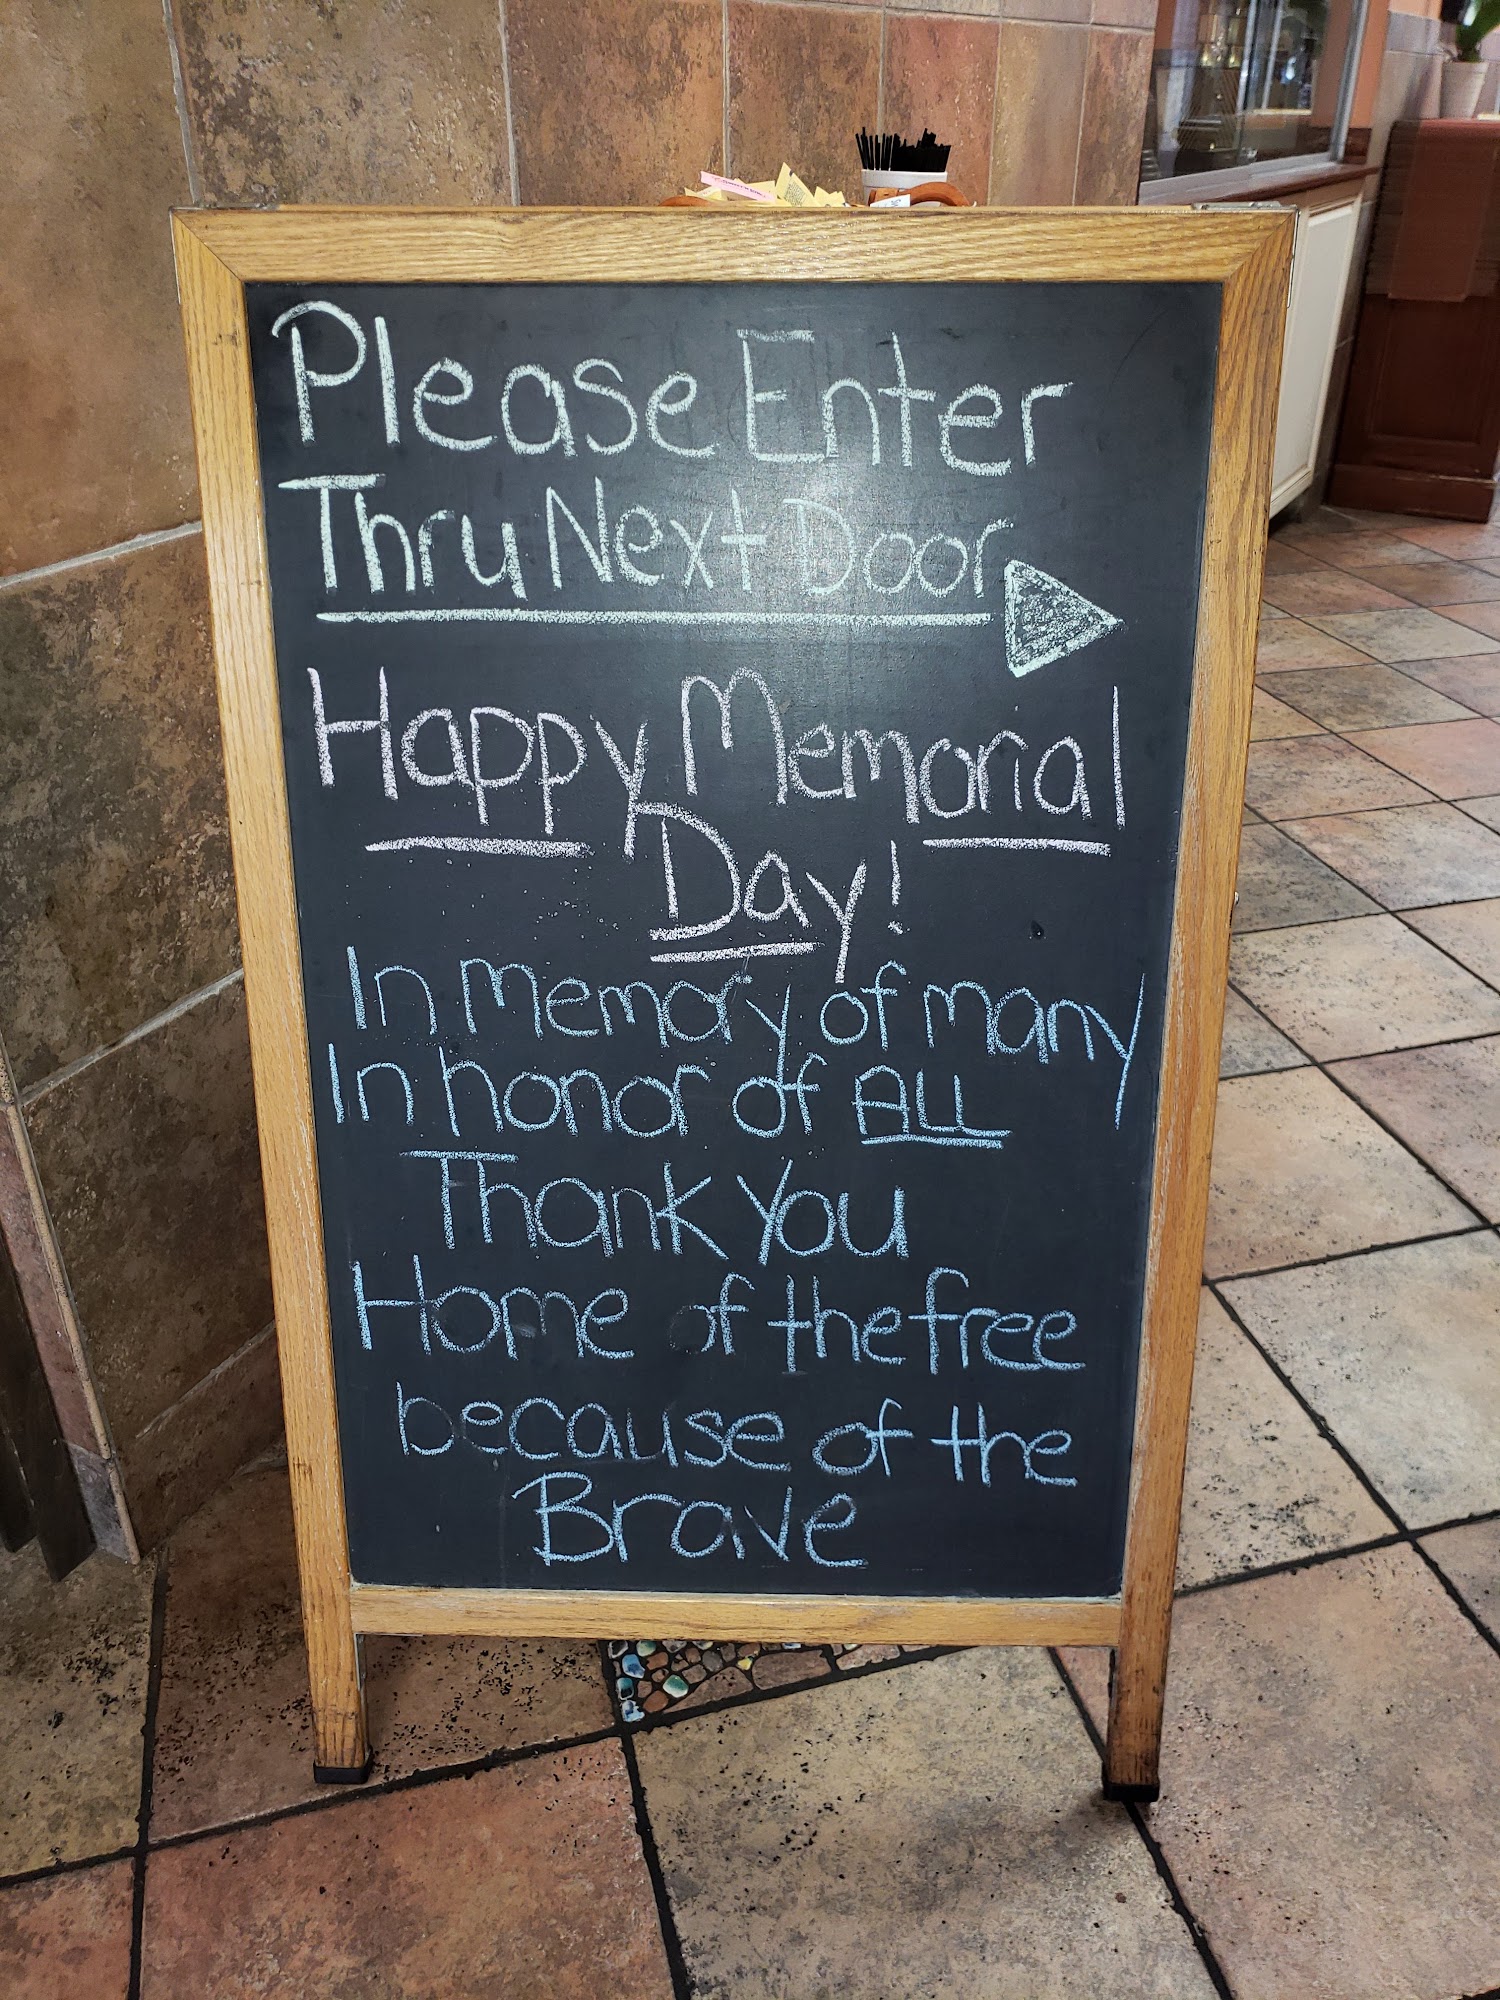 Please Enter
Thru Next Door
Happy Memorial
Day!
In memory of many
In honor of ALL
Thank You
Home of the free
because of the
Brave